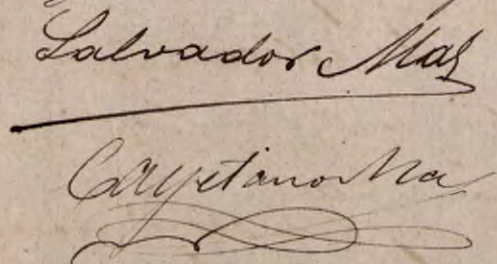 Salvador Mas
Cayetano Mas